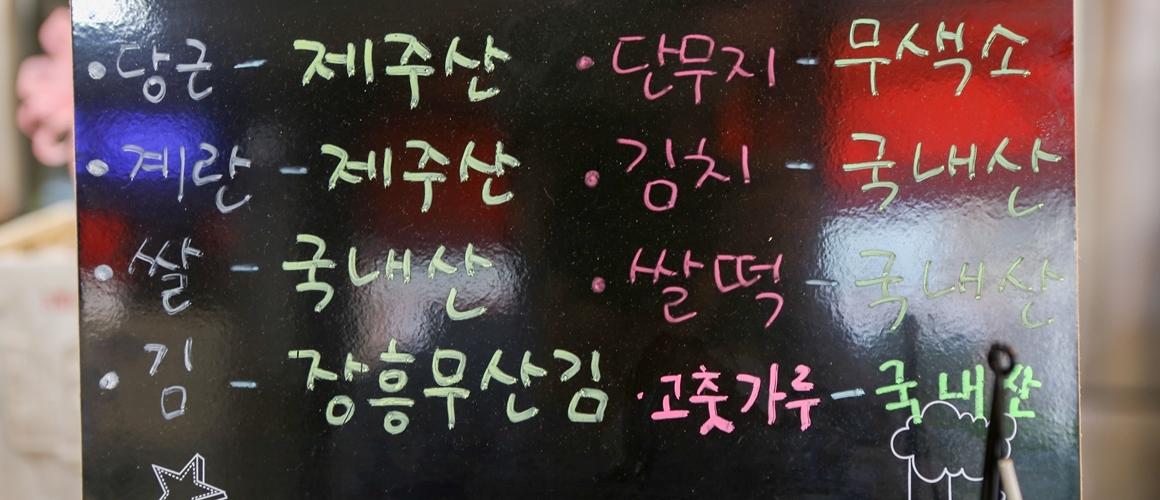 • 당근 - 제주산
• 계란 - 제주산
• 쌀 - 국내산
• 김 - 장흥무산김
• 단무지 - 무색소
• 김치 - 국내산
• 쌀떡 - 국내산
• 고춧가루 - 국내산